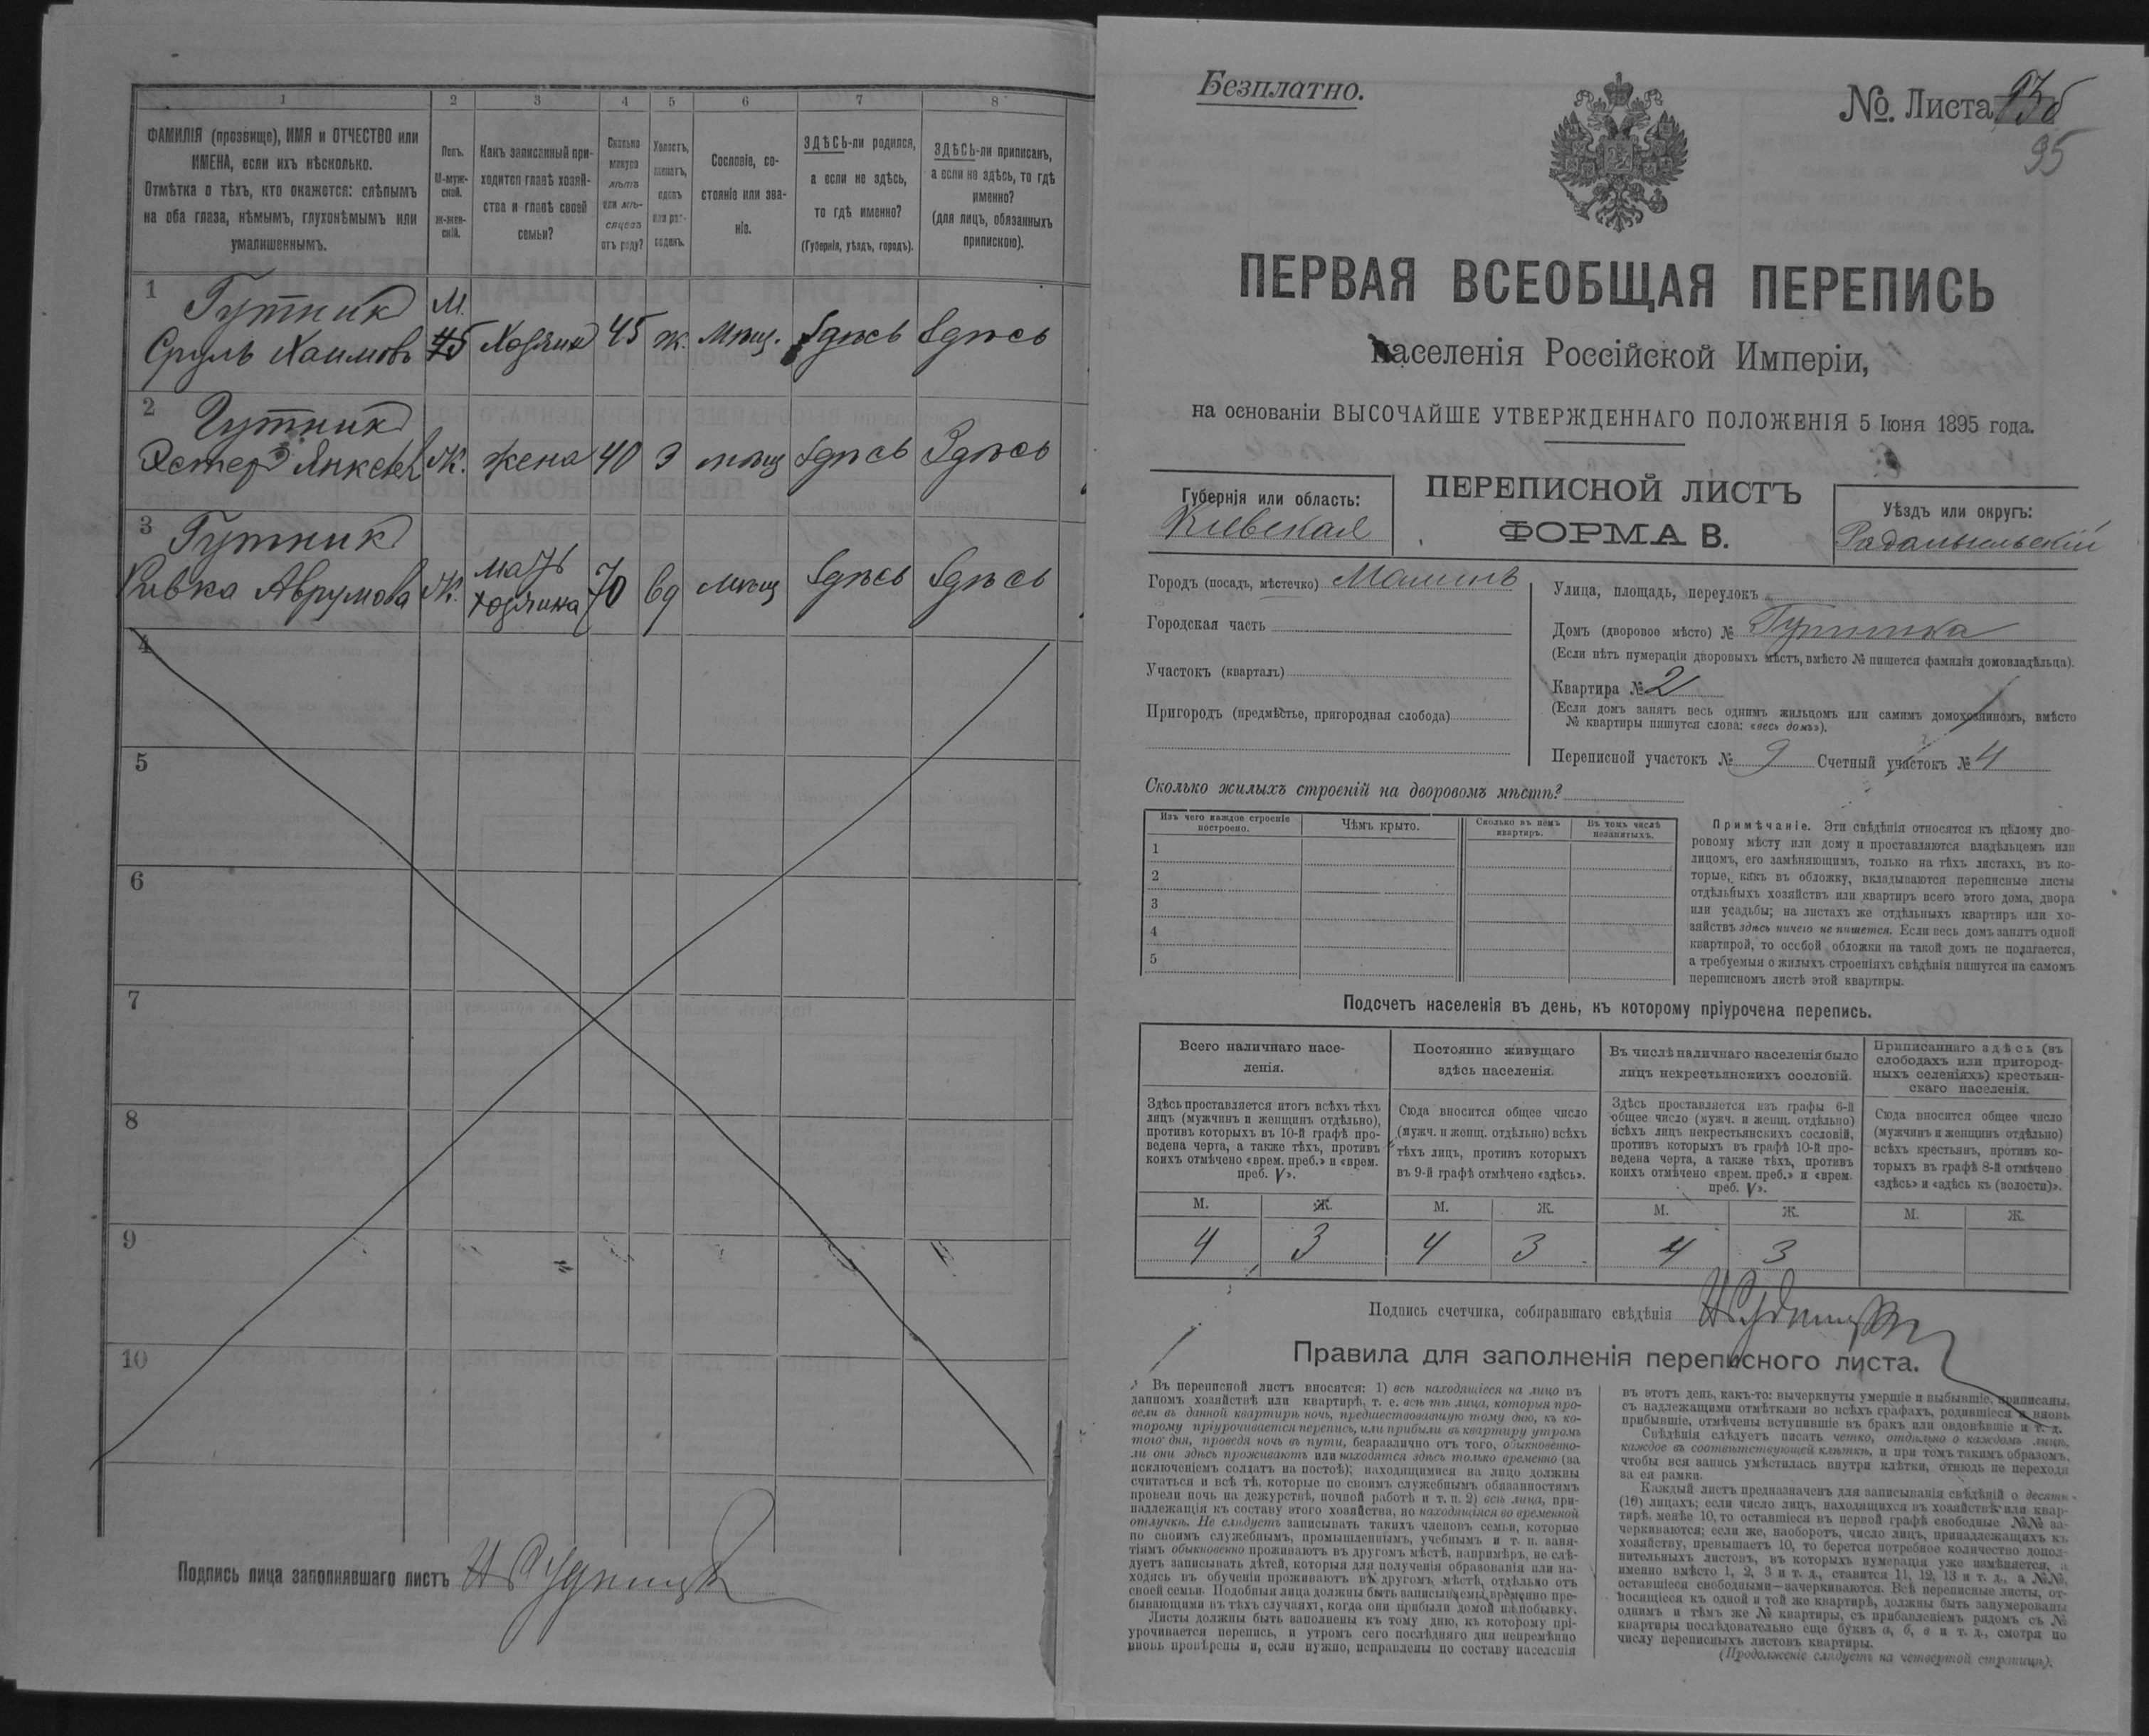 1 2 3 4 5 6 7 8
ФАМИЛІЯ (прозвище), ИМЯ и ОТЧЕСТВО или
ИМЕНА, если ихъ нѣсколько.
Отмѣтка о тѣхъ, кто окажется: слѣпымъ
на оба глаза, нѣмымъ, глухонѣмымъ или
умалишеннымъ.
Полъ.
М-муж-
ской.
Ж-жен-
скій.
Какъ записанный при-
ходится главѣ хозяй-
ства и главѣ своей
семьи?
Сколько
минуло
лѣтъ
или мѣ-
сяцевъ
отъ роду?
Холостъ,
женатъ,
вдовъ
или раз-
веденъ.
Сословіе, со-
стояніе или зва-
ніе.
ЗДѢСЬ-ли родился,
а если не здѣсь,
то гдѣ именно?
(Губернія, уѣздъ, городъ).
ЗДѢСЬ-ли приписанъ,
а если не здѣсь, то гдѣ
именно?
(для лицъ, обязанныхъ
припискою).
1 Гутник М.
Сруль Хаимовъ 45 Хозяин 45 ж. мѣщ. Здѣсь Здѣсь
2 Гутник
Эстер Янкел Ж. жена 40 З мѣщ Здѣсь Здѣсь
3 Гутник
Ривка Аврумова Ж. мать хозяина 70 вд мѣщ Здѣсь Здѣсь
4
5
6
7
8
9
10
Подпись лица заполнявшаго листъ
Безплатно.
№. Листа
95
ПЕРВАЯ ВСЕОБЩАЯ ПЕРЕПИСЬ
населенія Россійской Имперіи,
на основаніи ВЫСОЧАЙШЕ УТВЕРЖДЕННАГО ПОЛОЖЕНІЯ 5 Іюня 1895 года.
Губернія или область:
Кіевская
ПЕРЕПИСНОЙ ЛИСТЪ
ФОРМА В.
Уѣздъ или округъ:
Радомысльскій
Городъ (посадъ, мѣстечко) Малинъ
Городская часть
Участокъ (кварталъ)
Пригородъ (предмѣстье, пригородная слобода)
Улица, площадь, переулокъ
Домъ (дворовое мѣсто) № Гутника
(Если нѣтъ нумераціи дворовыхъ мѣстъ, вмѣсто № пишется фамилія домовладѣльца).
Квартира № 2
(Если домъ занятъ весь однимъ жильцомъ или самимъ домохозяиномъ, вмѣсто
№ квартиры пишутся слова: «весь домъ»).
Переписной участокъ № 9 Счетный участокъ № 4
Сколько жилыхъ строеній на дворовомъ мѣстѣ?
Изъ чего каждое строеніе
построено.
Чѣмъ крыто.
Сколько въ немъ
квартиръ.
Въ томъ числѣ
незанятыхъ.
1
2
3
4
5
Примѣчаніе. Эти свѣдѣнія относятся къ цѣлому дво-
ровому мѣсту или дому и проставляются владѣльцемъ или
лицомъ, его замѣняющимъ, только на тѣхъ листахъ, въ ко-
торые, какъ въ обложку, вкладываются переписные листы
отдѣльныхъ хозяйствъ или квартиръ всего этого дома, двора
или усадьбы; на листахъ же отдѣльныхъ квартиръ или хо-
зяйствъ здѣсь ничего не пишется. Если весь домъ занятъ одной
квартирой, то особой обложки на такой домъ не полагается,
а требуемыя о жилыхъ строеніяхъ свѣдѣнія пишутся на самомъ
переписномъ листѣ этой квартиры.
Подсчетъ населенія въ день, къ которому пріурочена перепись.
Всего наличнаго насе-
ленія.
Постоянно живущаго
здѣсь населенія.
Въ числѣ наличнаго населенія было
лицъ некрестьянскихъ сословій.
Приписаннаго здѣсь (въ
слободахъ или пригород-
ныхъ селеніяхъ) крестьян-
скаго населенія.
Здѣсь проставляется итогъ всѣхъ тѣхъ
лицъ (мужчинъ и женщинъ отдѣльно),
противъ которыхъ въ 10-й графѣ про-
ведена черта, а также тѣхъ, противъ
коихъ отмѣчено «врем. преб.» и «врем.
преб. V».
Сюда вносится общее число
(мужч. и женщ. отдѣльно) всѣхъ
тѣхъ лицъ, противъ которыхъ
въ 9-й графѣ отмѣчено «здѣсь».
Здѣсь проставляется изъ графы 6-й
общее число (мужч. и женщ. отдѣльно)
всѣхъ лицъ некрестьянскихъ сословій,
противъ которыхъ въ графѣ 10-й про-
ведена черта, а также тѣхъ, противъ
коихъ отмѣчено «врем. преб.» и «врем.
преб. V».
Сюда вносится общее число
(мужчинъ и женщинъ отдѣльно)
всѣхъ крестьянъ, противъ ко-
торыхъ въ графѣ 8-й отмѣчено
«здѣсь» и «здѣсь къ (волости)».
М. Ж. М. Ж. М. Ж. М. Ж.
4 3 4 3 4 3
Подпись счетчика, собиравшаго свѣдѣнія
Правила для заполненія переписного листа.
Въ переписной листъ вносятся: 1) всѣ находящіеся на лицо въ
данномъ хозяйствѣ или квартирѣ, т. е. всѣ тѣ лица, которыя про-
вели въ данной квартирѣ ночь, предшествовавшую тому дню, къ ко-
торому пріурочивается перепись, или прибыли въ квартиру утромъ
того дня, проведя ночь въ пути, безразлично отъ того, обыкновенно-
ли они здѣсь проживаютъ или находятся здѣсь только временно (за
исключеніемъ солдатъ на постоѣ); находящимися на лицо должны
считаться и всѣ тѣ, которые по своимъ служебнымъ обязанностямъ
провели ночь на дежурствѣ, ночной работѣ и т. п. 2) всѣ лица, при-
надлежащія къ составу этого хозяйства, но находящіяся во временной
отлучкѣ. Не слѣдуетъ записывать такихъ членовъ семьи, которые
по своимъ служебнымъ, промышленнымъ, учебнымъ и т. п. заня-
тіямъ обыкновенно проживаютъ въ другомъ мѣстѣ, напримѣръ, не слѣ-
дуетъ записывать дѣтей, которыя для полученія образованія или на-
ходясь въ обученіи проживаютъ въ другомъ мѣстѣ, отдѣльно отъ
своей семьи. Подобныя лица должны быть записываемы временно пре-
бывающими въ тѣхъ случаяхъ, когда они прибыли домой на побывку.
Листы должны быть заполнены къ тому дню, къ которому прі-
урочивается перепись, и утромъ сего послѣдняго дня непремѣнно
вновь провѣрены и, если нужно, исправлены по составу населенія
въ этотъ день, какъ-то: вычеркнуты умершіе и выбывшіе, приписаны,
съ надлежащими отмѣтками во всѣхъ графахъ, родившіеся и вновь
прибывшіе, отмѣчены вступившіе въ бракъ или овдовѣвшіе и т. д.
Свѣдѣнія слѣдуетъ писать четко, отдѣльно о каждомъ лицѣ,
каждое въ соотвѣтствующей клѣткѣ, и при томъ такимъ образомъ,
чтобы вся запись умѣстилась внутри клѣтки, отнюдь не переходя
за ея рамки.
Каждый листъ предназначенъ для записыванія свѣдѣній о десяти
(10) лицахъ; если число лицъ, находящихся въ хозяйствѣ или квар-
тирѣ, менѣе 10, то оставшіеся въ первой графѣ свободные №№ за-
черкиваются; если же, наоборотъ, число лицъ, принадлежащихъ къ
хозяйству, превышаетъ 10, то берется потребное количество допол-
нительныхъ листовъ, въ которыхъ нумерація уже измѣняется, а
именно вмѣсто 1, 2, 3 и т. д., ставится 11, 12, 13 и т. д., а №№,
оставшіеся свободными—зачеркиваются. Всѣ переписные листы, от-
носящіеся къ одной и той же квартирѣ, должны быть занумерованы
однимъ и тѣмъ же № квартиры, съ прибавленіемъ рядомъ съ №
квартиры послѣдовательно еще буквъ а, б, в и т. д., смотря по
числу переписныхъ листовъ квартиры.
(Продолженіе слѣдуетъ на четвертой страницѣ).